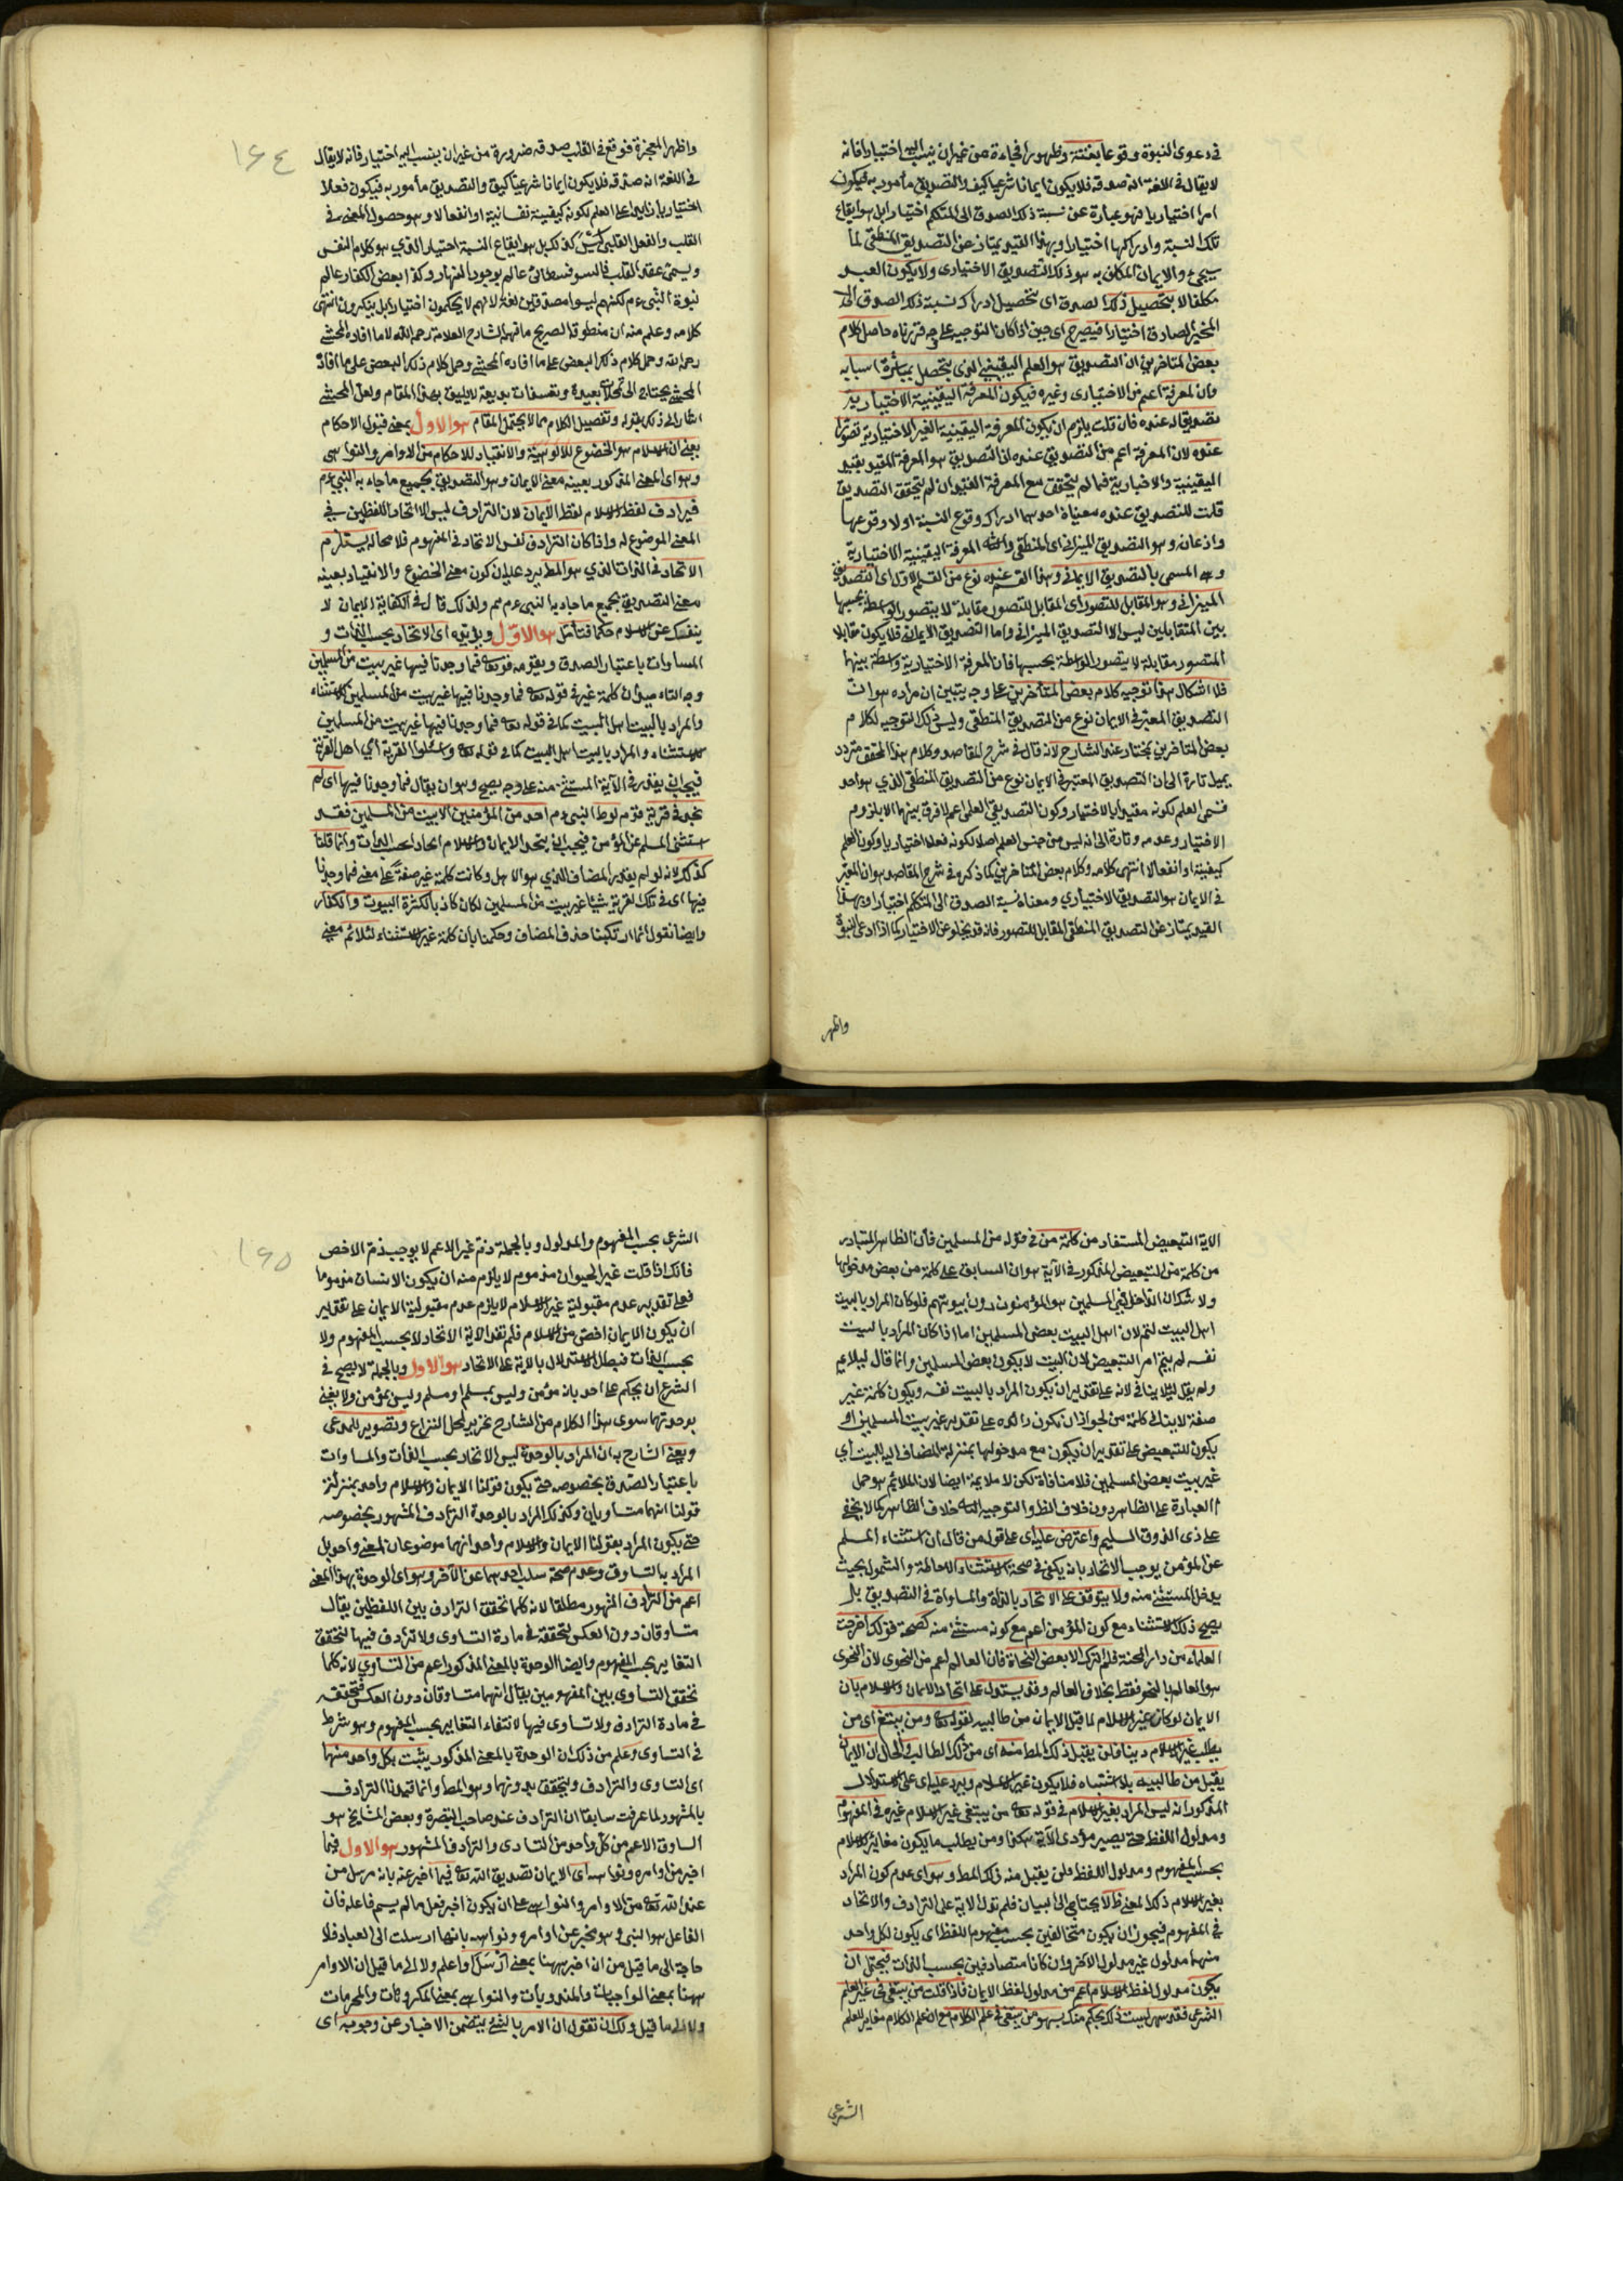 في دعوى النبوة وقوعا بغتة وظهورا فجاءة من غير ان ينسب اليه اختيارا فانه
لا يقال في اللغة انه صدقه فلا يكون ايمانا شرعيا كيف والتصديق مأمور به فيكون
امرا اختياريا فهو عبارة عن نسبة ذلك الصدق الى المتكلم اختيارا بل هو ايقاع
تلك النسبة وادراكها اختيارا وبهذا القيد يمتاز عن التصديق المنطقي لما
سيجيء والايمان المكلف به هو ذلك التصديق الاختياري ولا يكون العبد
مكلفا الا بتحصيل ذلك الصدق اى بتحصيل ادراك نسبة ذلك الصدق الى
المخبر الصادق اختيارا فيصرح اى حين اذا كان التوجيه على وجه قررناه حاصل كلام
بعض المتأخرين ان التصديق هو العلم اليقيني الذى يتحصل بمباشرة اسبابه
وان المعرفة اعم من الاختيارى وغيره فيكون المعرفة اليقينية الاختيارية
تصديقا عنده فان قلت يلزم ان يكون المعرفة اليقينية الغير الاختيارية تصورا
عنده لان المعرفة اعم من التصديق عنده اذ التصديق هو المعرفة المقيد بقيد
اليقينية والاختيارية فما لم يتحقق مع المعرفة القيدان لم يتحقق التصديق
قلت للتصديق عنده معنيان احدهما ادراك وقوع النسبة او لا وقوعها
واذعان وهو التصديق الميزاني اى المنطقي والثاني المعرفة اليقينية الاختيارية
وهى المسمى بالتصديق الايماني وهذا القسم عنده نوع من القسم الاول اى التصديق
الميزانى وهو المقابل للتصور اى المقابل للتصور مقابلة لا يتصور الواسطة بحسبها
بين المتقابلين ليس الا التصديق الميزاني واما التصديق الايماني فلا يكون مقابلا
للتصور مقابلة لا يتصور الواسطة بحسبها فان المعرفة الاختيارية واسطة بينهما
فلا اشكال هذا توجيه كلام بعض المتأخرين على وجه يتبين ان مراده هو ان
التصديق المعتبر في الايمان نوع من التصديق المنطقي وليس ذلك التوجيه لكلام
بعض المتاخرين بمختار عند الشارح لانه قال في شرح المقاصد وكلام هذا المحقق متردد
يميل تارة الى ان التصديق المعتبر في الايمان نوع من التصديق المنطقي الذي هو احد
قسمى العلم لكونه مقيدا بالاختيار وكون التصديق العلمى اعم لا فرق بينهما الا بلزوم
الاختيار وعدمه وتارة الى انه ليس من جنس العلم اصلا لكونه فعلا اختياريا وكون العلم
كيفية او انفعالا انتهى كلامه وكلام بعض المتأخرين كما ذكره في شرح المقاصد هو ان المعتبر
في الايمان هو التصديق الاختياري ومعناه نسبة الصدق الى المتكلم اختيارا وبهذا
القيد يمتاز عن التصديق المنطقي المقابل للتصور فانه قد يخلو عن الاختيار كما اذا ادعى النبوة
واظهر
١٦٤
واظهر المعجزة فوقع في القلب صدقه ضرورة من غير ان ينسب اليه اختيار فانه لا يقال
في اللغة انه صدقه فلا يكون ايمانا شرعيا كيف والتصديق مأمور به فيكون فعلا
اختياريا زايدا على العلم لكونه كيفية نفسانية او انفعالا وهو حصول المعنى في
القلب والفعل القلبي ليس كذلك بل هو ايقاع النسبة اختيارا الذي هو كلام النفس
ويسمى عقد القلب فالسوفسطائي عالم بوجود النهار وكذا بعض الكفار عالم
نبوة النبى ءم لكنهم ليسوا مصدقين لغة لانهم لا يحكمون اختيارا بل ينكرون انتهى
كلامه وعلم منه ان منطوقه الصريح ما فهمه الشارح العلامة رحمه الله لا ما افاده المحشى
رحمه الله وحمل كلام ذلك البعض على ما افاده المحشى وحمل كلام ذلك البعض على ما افاده
المحشى يحتاج الى تمحلات بعيدة وتعسفات بديعة لا يليق بهذا المقام ولعل المحشى
اشار الى ذلك بقوله وتفصيل الكلام مما لا يحتمل المقام هو الاول بمعنى قبول الاحكام
يعنى ان الاسلام هو الخضوع للالوهية والانقياد للاحكام من الاوامر والنواهى
وهو اى المعنى المذكور بعينه معنى الايمان وهو التصديق بجميع ما جاء به النبى ءم
فيرادف لفظ الاسلام لفظ الايمان لان الترادف ليس الا اتحاد اللفظين في
المعنى الموضوع له واذا كان الترادف نفس الاتحاد في المفهوم فلا محالة يستلزم
الاتحاد في الذات الذي هو المط يرد عليه ان كون معنى الخضوع والانقياد بعينه
معنى التصديق بجميع ما جاء به النبى ءم مم ولذلك قال في الكفاية الايمان لا
ينفك عن الاسلام حكما فتأمل هو الاول ويؤيده اى الاتحاد بحسب الذات و
المساوات باعتبار الصدق ويقويه قوله تعالى فما وجدنا فيها غير بيت من المسلمين
وجه التأييد ان كلمة غير في قوله تعالى فما وجدنا فيها غير بيت من المسلمين للاستثناء
والمراد بالبيت اهل البيت كما في قوله تعالى فما وجدنا فيها غير بيت من المسلمين
للاستثناء والمراد بالبيت اهل البيت كما في قوله تعالى واسئلوا القرية اي اهل القرية
فيجب ان يقدر في الآية المستثنى منه على وجه يصح وهو ان يقال فما وجدنا فيها اى لم
نجد في قرية قوم لوط النبى ءم احد من المؤمنين الا بيت من المسلمين فقد
استثنى المسلم عن المؤمن فيجب ان يتحد الايمان والاسلام اتحادا بحسب الذات وانما قلنا
كذلك لانه لو لم يقدر المضاف الذي هو الاهل وكانت كلمة غير صفة على معنى فما وجدنا
فيها اى في تلك القرية شيئا غير بيت من المسلمين لكان كاذبا لكثرة البيوت والكفار
وايضا نقول انما ارتكبنا حذف المضاف وحكمنا بان كلمة غير للاستثناء لئلائم معنى
الاية التبعيض المستفاد من كلمة من في قوله من المسلمين فأن الظاهر المتبادر
من كلمة من التبعيض المذكور في الآية هو ان السابق على كلمة من بعض مدخولها
ولا شك ان الداخل في المسلمين هو المؤمنون دون بيوتهم فلو كان المراد بالبيت
اهل البيت لتم لان اهل البيت بعض المسلمين اما اذا كان المراد بالبيت
نفسه لم يتم امر التبعيض لان البيت لا يكون بعض المسلمين وانما قال ليلائم
ولم يقل لئلا ينافى لانه على تقدير ان يكون المراد بالبيت نفسه ويكون كلمة غير
صفة لا ينافى كلمة من لجواز ان تكون زائدة على تقدير غير بيت المسلمين او
يكون للتبعيض على تقدير ان يكون مع مدخولها بمنزلة المضاف اليه للبيت أي
غير بيت بعض المسلمين فلا منافاة لكن لا ملايمة ايضا لان الملائم هو حمل
العبارة على الظاهر دون خلاف الظ والتوجيه الثانى خلاف الظاهر كما لا يخفى
على ذى الذوق السليم واعترض عليه اى على قوله من قال ان استثناء المسلم
عن المؤمن يوجب الاتحاد بانه يكفى في صحة الاستثناء الاحاطة والشمول بحيث
يدخل المستثنى منه ولا يتوقف على الاتحاد بالذات والمساواة في التصديق بل
يصح ذلك الاستثناء مع كون المؤمن اعم مع كونه مستثنى منه كصحة قولك اخرجت
العلماء من دار المحنة فلم اترك الا بعض النحاة فان العالم اعم من النحوى لان النحوى
هو العالم بالنحو فقط بخلاف العالم وقد يستدل على اتحاد الايمان والاسلام بان
الايمان لو كان غير الاسلام لما قبل الايمان من طالبيه لقوله تعالى ومن يبتغ اى من
يطلب غير الاسلام دينا فلن يقبل ذلك المط منه اى من ذلك الطالب والحال ان الايمان
يقبل من طالبيه بلا اشتباه فلا يكون غير الاسلام ويرد عليه اى على الاستدلال
المذكور انه ليس المراد بغير الاسلام في قوله تعالى من يبتغى غير الاسلام غيره في المفهوم
ومدلول اللفظ حتى يصير مؤدى الآية هكذا ومن يطلب ما يكون مغايرا للاسلام
بحسب المفهوم ومدلول اللفظ فلن يقبل منه ذلك المط وهو اى عدم كون المراد
بغير الاسلام ذلك المعنى ظ لا يحتاج الى البيان فلم تدل الاية على الترادف والاتحاد
في المفهوم فيجوز ان يكون متخالفين بحسب مفهوم اللفظ اى يكون لكل واحد
منهما مدلول غير مدلول الاخر وان كانا متصادقين بحسب الذات فيحتمل ان
يكون مدلول لفظ الاسلام اعم من مدلول لفظ الايمان فاذا قلت من يبتغى في غير العلم
الشرعى فقد سهى ليست ذلك بحكم منك بسهو من يبتغى في علم الكلام مع ان علم الكلام مغاير للعلم
الشرعى
١٦٥
الشرعى بحسب المفهوم والمدلول وبالجملة ذم غير الاعم لا يوجب ذم الاخص
فانك اذا قلت غير الحيوان مذموم لا يلزم منه ان يكون الانسان مذموما
فعلى تقدير عدم مقبولية غير الاسلام لا يلزم عدم مقبولية الايمان على تقدير
ان يكون الايمان اخص من الاسلام فلم تفد الاية الاتحاد لا بحسب المفهوم ولا
بحسب الذات فبطل الاستدلال بالاية على الاتحاد هو الاول وبالجملة لا يصح في
الشرع ان يحكم على احد بانه مؤمن وليس بمسلم او مسلم وليس بمؤمن ولا نعنى
بوحدتهما سوى هذا الكلام من الشارح تحرير لمحل النزاع وتصوير للمدعى
ويعنى الشارح به ان المراد بالوحدة ليس الاتحاد بحسب الذات والمساوات
باعتبار الصدق بخصوصه حتى يكون قولنا الايمان والاسلام واحد بمنزلة
قولنا انهما متساويان وكذلك المراد بالوحدة الترادف المشهور بخصوصه
حتى يكون المراد بقولنا الايمان والاسلام واحد انهما موضوعان لمعنى واحد بل
المراد بالتساوق وعدم صحة سلب احدهما عن الآخر وهو اى الوحدة بهذا المعنى
اعم من الترادف المشهور مطلقا لانه كلما تحقق الترادف بين اللفظين يقال
متساوقان دون العكس لتحققه في مادة التساوى ولا ترادف فيها لتحقق
التغاير بحسب المفهوم وايضا الوحدة بالمعنى المذكور اعم من التساوي لانه كلما
تحقق التساوى بين المفهومين يقال انهما متساوقان دون العكس لتحققه
في مادة الترادف ولا تساوى فيها لانتفاء التغاير بحسب المفهوم وهو شرط
في التساوى وعلم من ذلك ان الوحدة بالمعنى المذكور يثبت بكل واحد منهما
اى التساوى والترادف ويتحقق بدونهما وهو المط وانما قيدنا الترادف
بالمشهور لما عرفت سابقا ان الترادف عند صاحب التبصرة وبعض المشايخ هو
التساوق الاعم من كل واحد من التساوى والترادف المشهور هو الاول فيما
اخبر من اوامره ونواهيه اى الايمان تصديق الله تعالى فيما اخبر عنه بانه مرسل من
عند الله تعالى من الاوامر والنواهى على ان يكون اخبر فعل ما لم يسم فاعله فان
الفاعل هو النبى وهو مخبر عن اوامره ونواهيه بانها ارسلت الى العباد فلا
حاجة الى ما قيل من ان اخبر ههنا بمعنى ارسل واعلم ولا الى ما قيل ان الاوامر
ههنا بمعنى الواجبات والمندوبات والنواهى بمعنى المكروهات والمحرمات
ولا الى ما قيل ولك ان تقول ان الامر بالشئ يتضمن الاخبار عن وجوبه اى